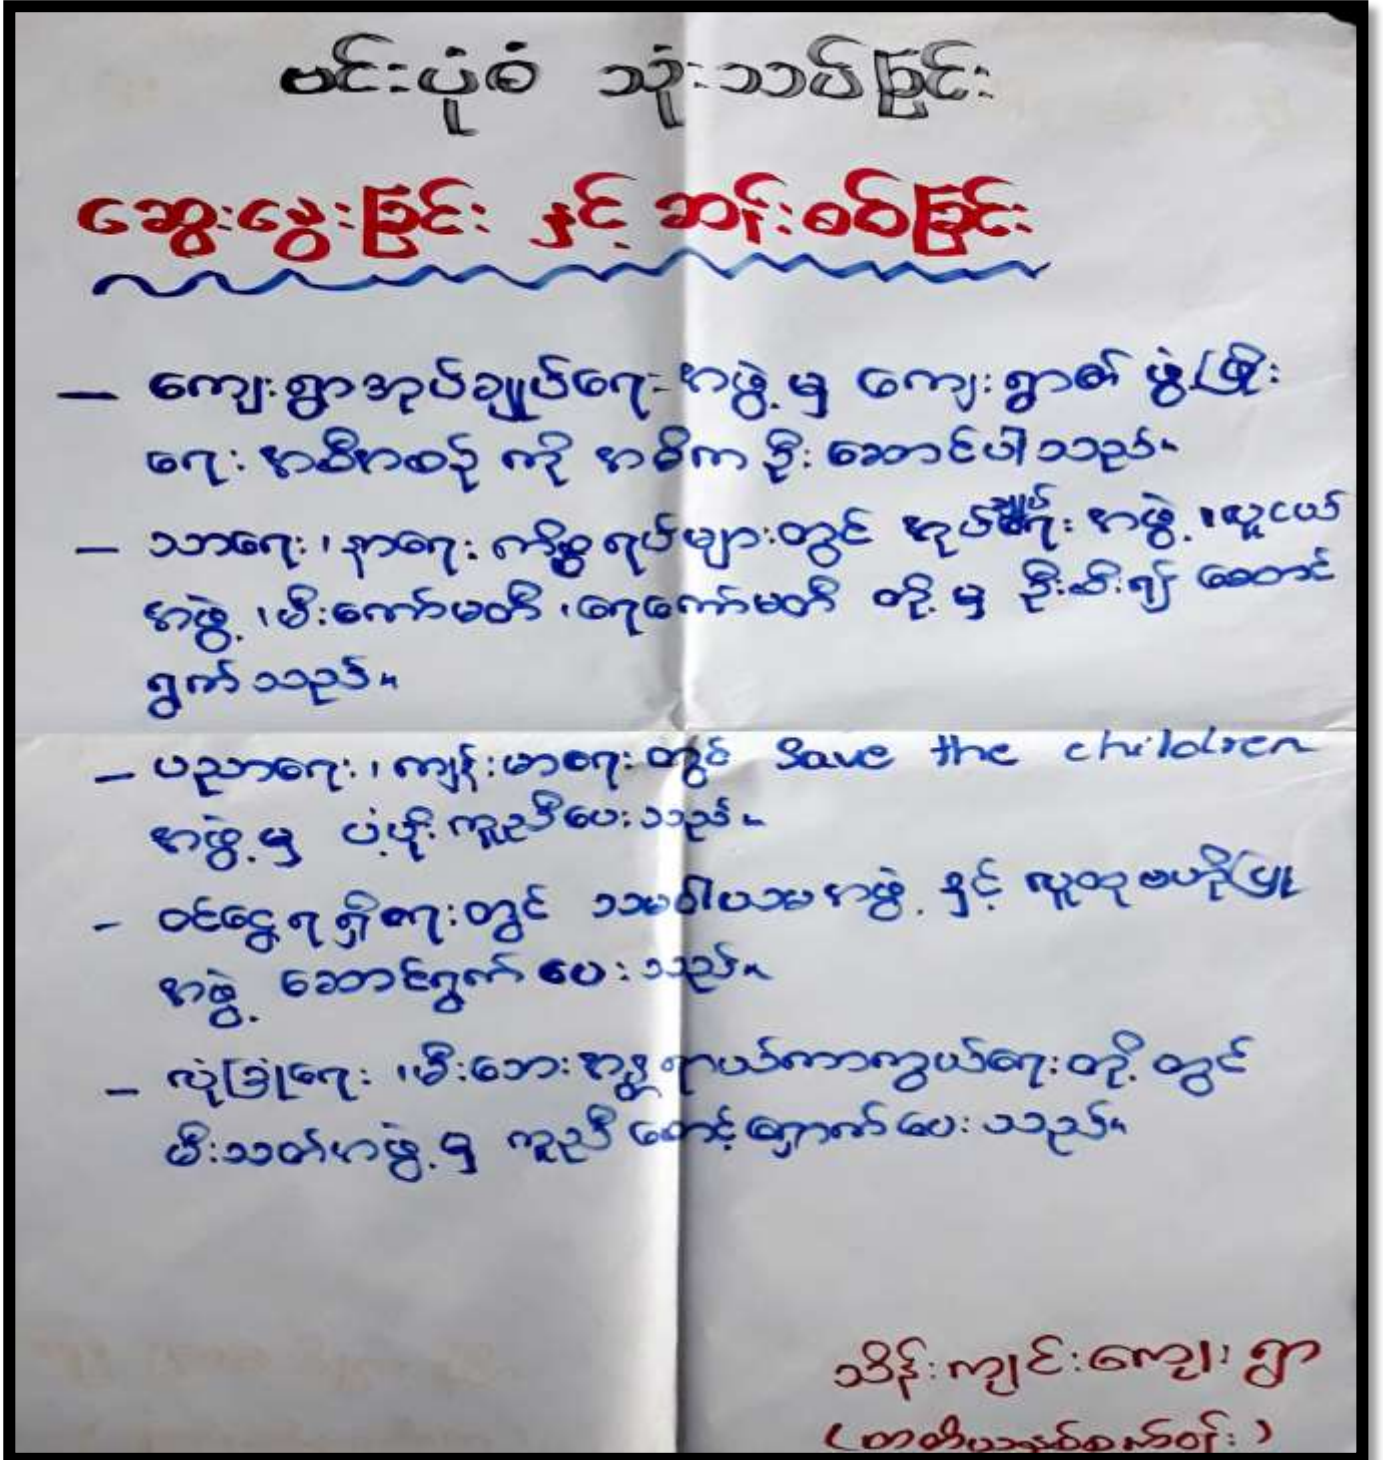 ဗင်းပုံစံ သုံးသပ်ခြင်း
ဆွေးနွေးခြင်း နှင့် ဆန်းစစ်ခြင်း
— ကျေးရွာအုပ်ချုပ်ရေးအဖွဲ့မှ ကျေးရွာ၏ ဖွံ့ဖြိုး
ရေး အစီအစဉ် ကို အဓိက ဦးဆောင်ပါသည်။
— သာရေး၊နာရေး ကိစ္စရပ်များတွင် အုပ်ချုပ်ရေးအဖွဲ့၊လူငယ်
အဖွဲ့၊မီးကော်မတီ၊ရေကော်မတီ တို့မှ ဦးစီး၍ ဆောင်
ရွက်သည်။
- ပညာရေး၊ကျန်းမာရေးတွင် Save the children
အဖွဲ့မှ ပံ့ပိုးကူညီပေးသည်။
- ဝင်ငွေရရှိရေးတွင် သမဝါယမအဖွဲ့ နှင့် လူထုဗဟိုပြု
အဖွဲ့ ဆောင်ရွက်ပေးသည်။
- လုံခြုံရေး၊မီးဘေးအန္တရာယ်ကာကွယ်ရေးတို့တွင်
မီးသတ်အဖွဲ့မှ ကူညီစောင့်ရှောက်ပေးသည်။
သိန်းကျင်းကျေးရွာ